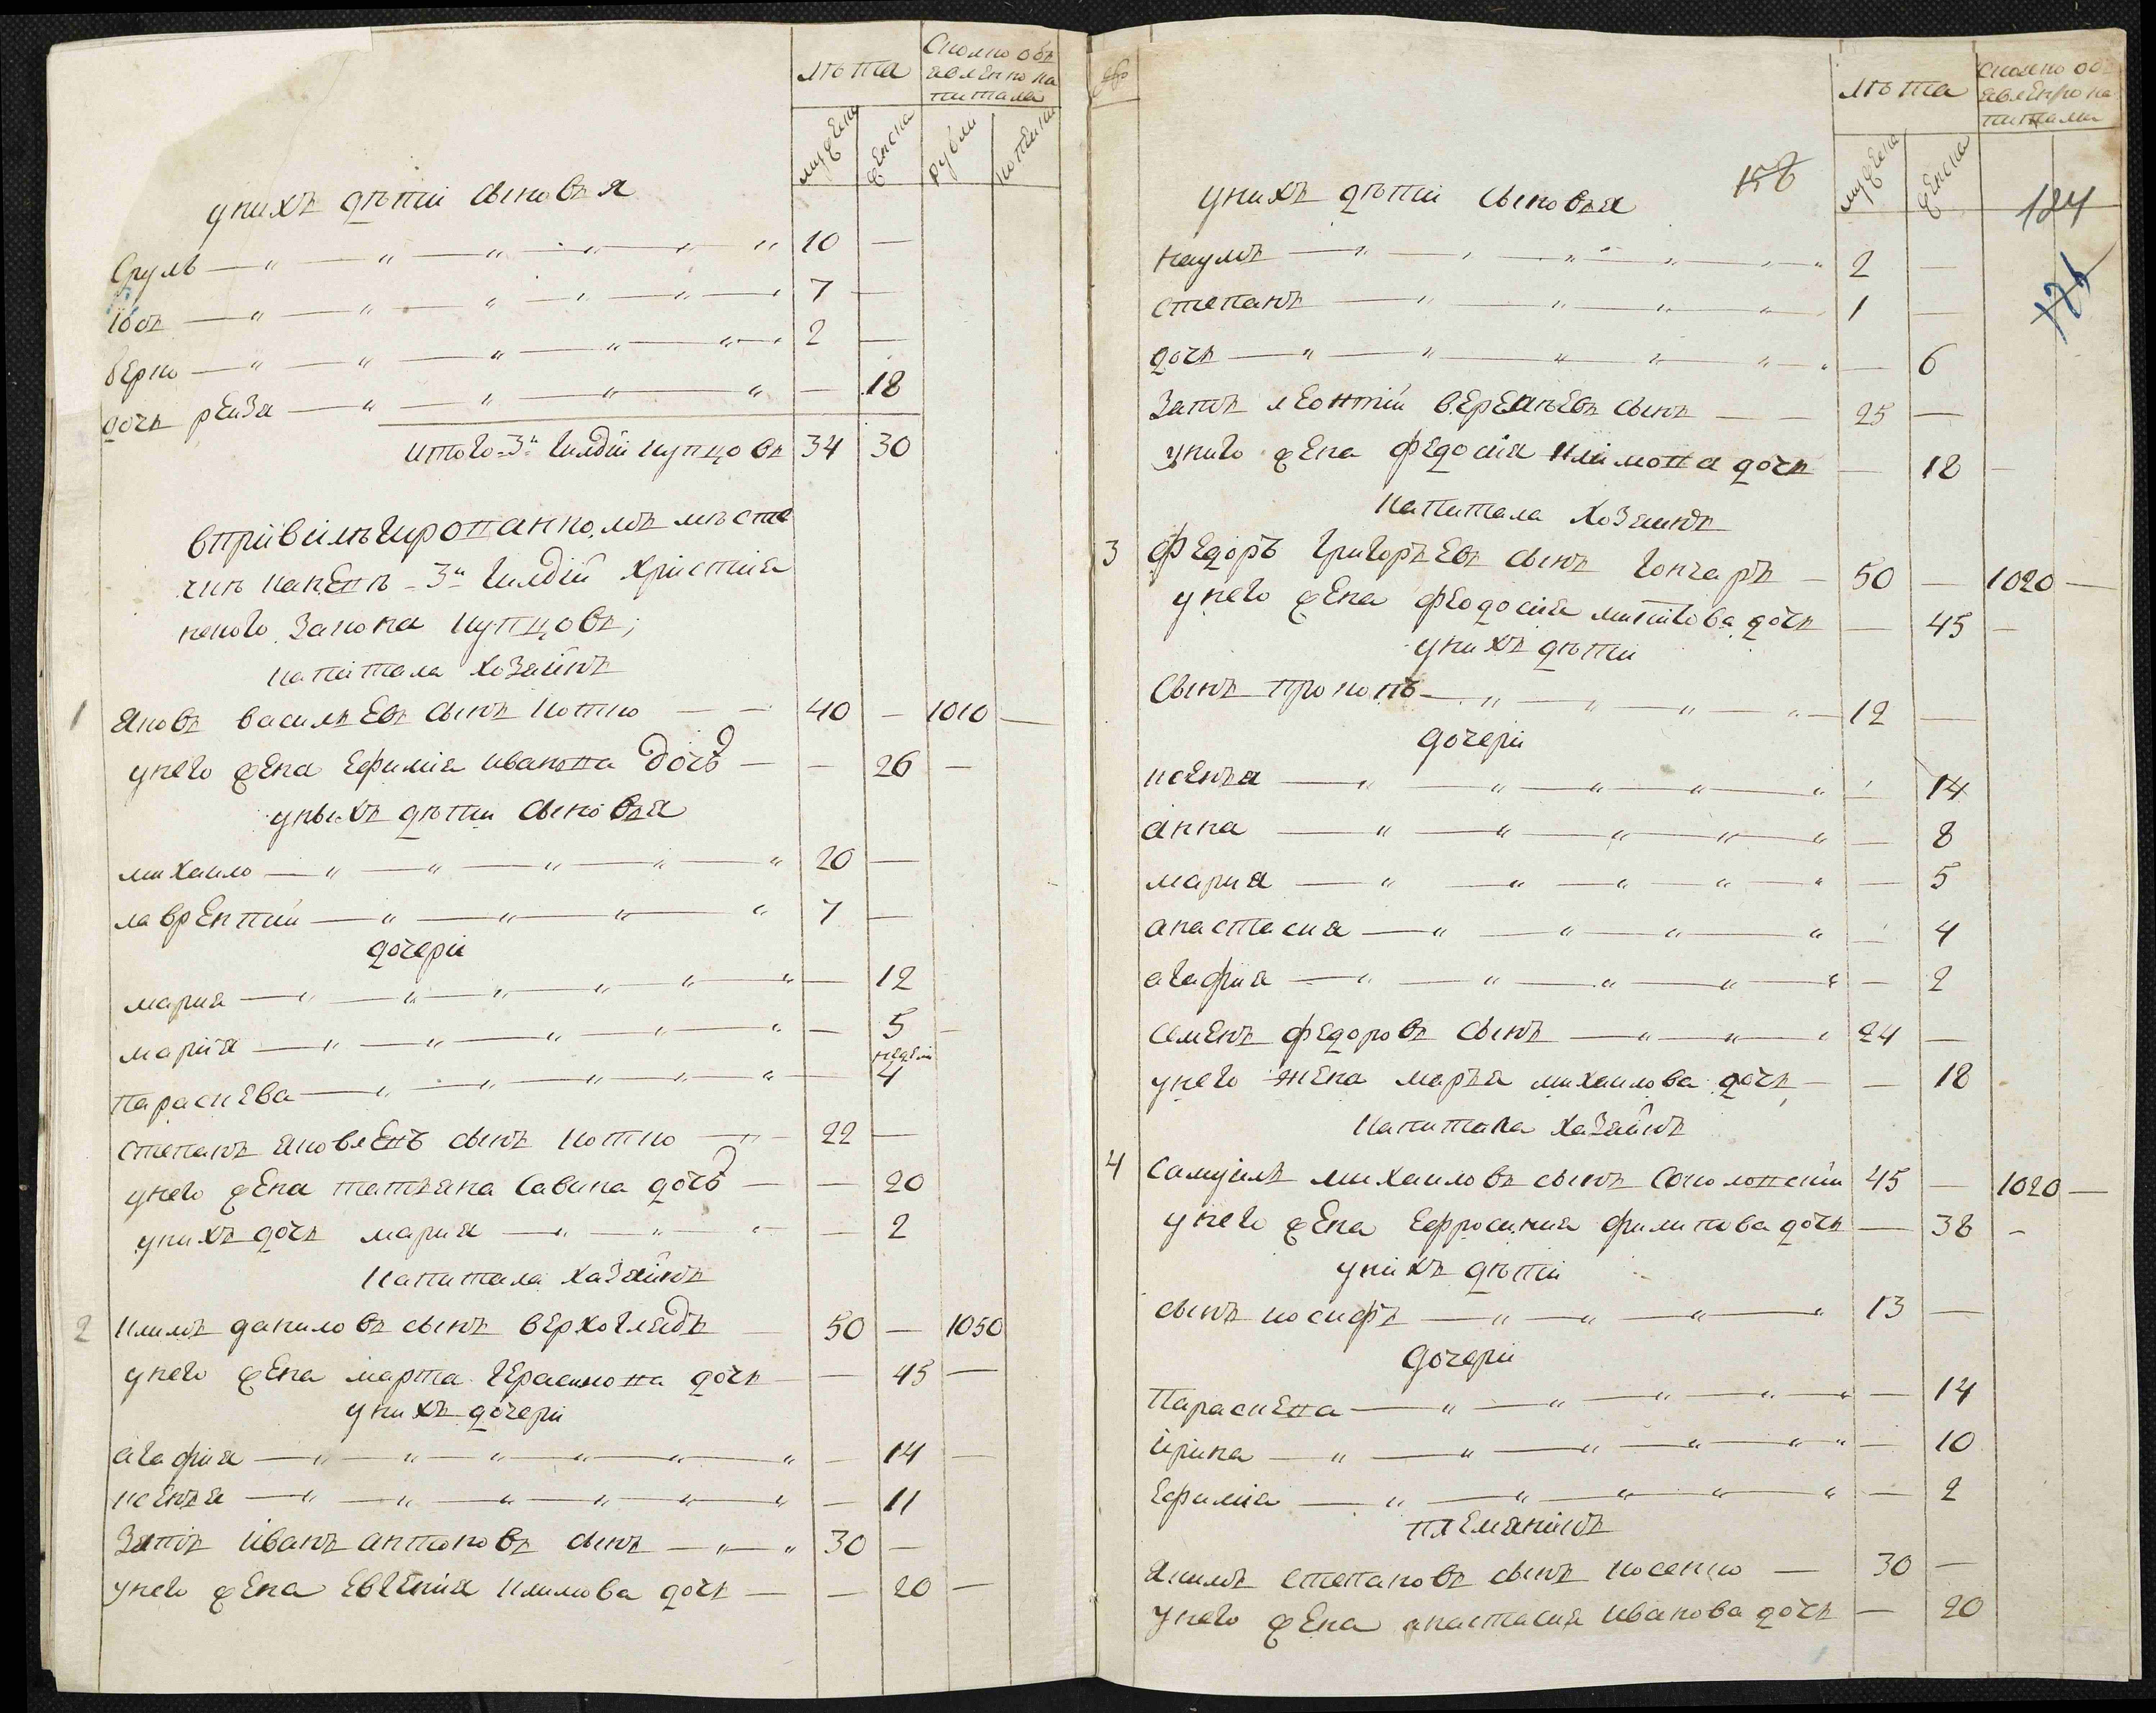 лѣта
Сколко объ
явленно ка
питала
мужеска
женска
рубли
копѣики
уних детіи сыновья
Сруль — " — " — " — " — " — " 10 —
Іосъ — " — " — " — " — " — 7 —
берко — " — " — " — " — " — 2 —
дочь реиза — " — " — " — " — 18
итого 3й гилдіи купцовъ 34 30
впривілѣгированномъ мѣсте
чкѣ 3й гилдіи христиа
нского закона купцовъ;
капітала хозяинъ
1 Яковъ васильевъ сынъ котко — — 40 — 1010 —
унего жена Ефимія иванова дочь — — 26 —
уныхъ дѣтіи сыновья
михаило — " — " — " — " — " 20 —
лаврентіи — " — " — " — " 7 —
дочери
мария — " — " — " — " — " — " — 12
марія — " — " — " — " — " — 5 —
недели
параскева — " — " — " — " — " — 4
степанъ яковлевъ сынъ котко — " — 22 —
унего жена татьяна савина дочь — — 20
унихъ дочь мария — " — " — " — 2
капитала хазяинъ
2 климъ даниловъ сынъ верхогляд — 50 — 1050
унего жена марта Герасимова дочь — — 45 —
унихъ дочери
агафия — " — " — " — " — " — " — 14 —
ксенья — " — " — " — " — " — " — 11
Зятъ иванъ антоновъ сынъ — " — " 30 —
унего жена Евгения климова дочь — — 20 —
лѣта
Сколко объ
явленно ка
питала
мужеска
женска
158
184
176
унихъ дѣтіи сыновья
наумъ — " — " — " — " — " — " 2 —
степанъ — " — " — " — " — 1 —
дочь — " — " — " — " — " — 6
Зятъ леонтій сынъ — — 25 —
униго жена федосия клімова дочь — 18 —
капитала хозяинъ
3 федоръ григорьевъ сынъ гончаръ — 50 — 1020 —
унего жена феодосия дочь — 45 —
унихъ дѣтіи
Сынъ прокопъ — " — " — " — " — 12 —
дочери
ксенья — " — " — " — " — " — 14
анна — " — " — " — " — " — 8
мария — " — " — " — " — " — 5
анастасия — " — " — " — " — 4
агафия — " — " — " — " — " — 2
семенъ федоровъ сынъ — " — " — " 24 —
унего жена марья михаилова дочь — — 18
капитала хазяинъ
4 самуилъ михаиловъ сынъ соколовскіи 45 — 1020 —
унего жена Ефросиния филипова дочь — 38 —
уніхъ дѣтіи
сынъ иосифъ — " — " — " — " 13 —
дочери
Параскева — " — " — " — " — " — 14
ирина — " — " — " — " — " — " — 10
Ефимія — " — " — " — " — " — 2
племянікъ
якимъ степановъ сынъ косенко — 30 —
унего жена анастасия иванова дочь — 20